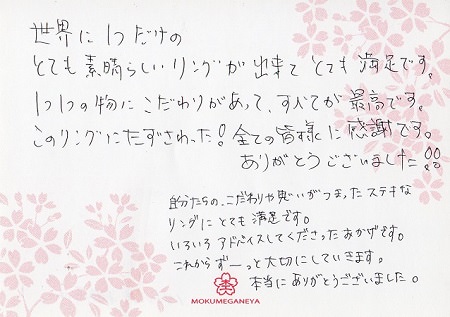 世界に1つだけの
とても素晴らしいリングが出来てとても満足です。
1つ1つの物にこだわりがあって、すべてが最高です。
このリングにたずさわった！全ての皆様に感謝です。
ありがとうございました!!
自分たちの、こだわりや思いがつまったステキな
リングにとても満足です。
いろいろアドバイスしてくださったおかげです。
これからずーっと大切にしていきます。
本当にありがとうございました。
MOKUMEGANEYA